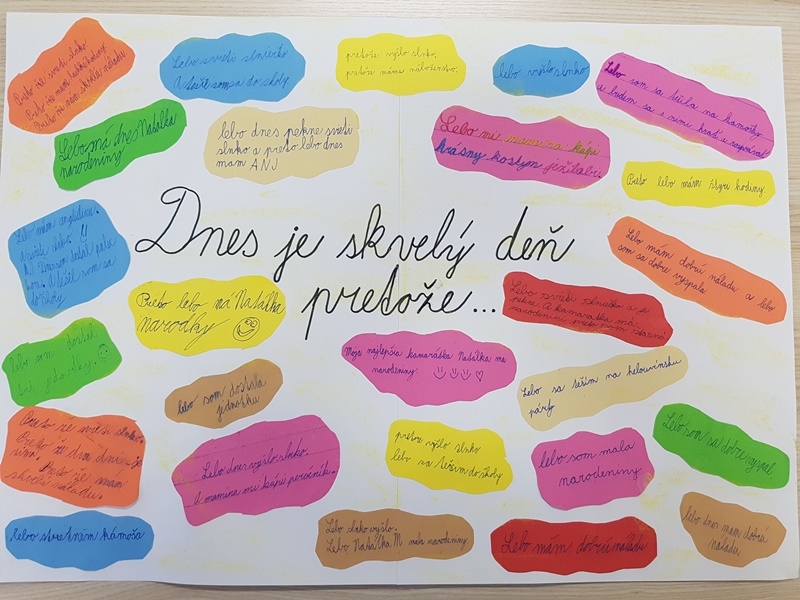 Preto že svieti slnko
Preto že mám
Preto že mám skvelú náladu.
Lebo svieti slniečko
A tešil som sa do školy
pretože vyšlo slnko,
pretože máme náboženstvo.
lebo vyšlo slnko
Lebo som sa tešila na kamošky
a budem sa s nimi hrať a rozprávať
Lebo má dnes Natálka
narodeniny
lebo dnes pekne svieti
slnko a preto lebo dnes
mam ANJ
Lebo mi mama kúpi
krásny kostým ježibabi.
Preto lebo mám štyri hodiny.
Lebo mám angličtinu.
A
do školy
Dnes je skvelý deň
pretože...
Lebo mám dobrú náladu a lebo
som sa dobre vyspala
Preto lebo má Natálka
narodky
Lebo svieti slniečko a je
pekne. A kamaratka má
narodeniny preto
Lebo som dostal
tri jednotky.
Moja najlepšia kamarátka Natálka ma
narodeniny
lebo som dostala
jednotku
Lebo sa teším na helouvínsku
párty
Preto že svieti slnko.
Preto že
Preto že mám
skvelú náladu.
Lebo dnes vyšlo slnko.
A mamina mi kúpi
pretože vyšlo slnko
lebo sa teším do školy
lebo som mala
narodeniny
Lebo som sa dobre vyspal
lebo stretnem kámoša
Lebo slnko vyšlo.
Lebo Natálka M má narodeniny
Lebo mám dobrú náladu
lebo dnes mam dobrú
náladu